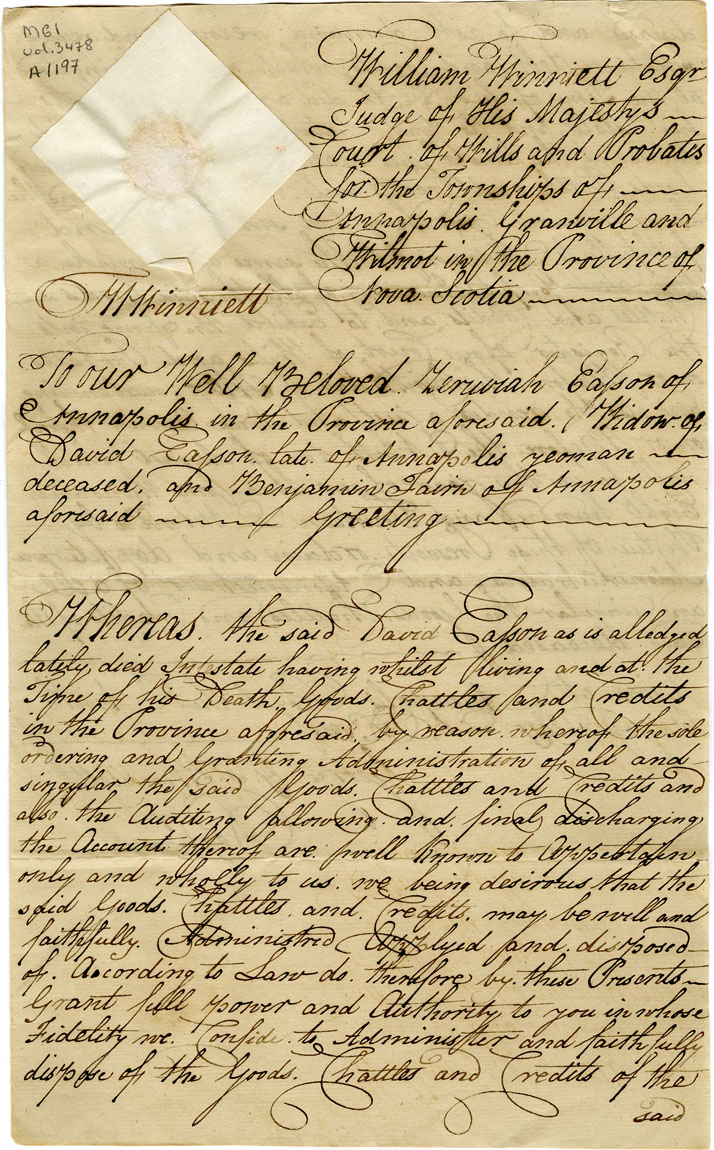 MG1
vol. 3478
A/197
William Winniett Esqr
Judge of His Majestys
Court of Wills and Probates
for the Townships of
Annapolis Granville and
Wilmot in the Province of
Nova Scotia
WWinniett
To our Well Beloved Zeruviah Easson of
Annapolis in the Province aforesaid (Widow of
David Easson late of Annapolis yeoman
deceased, and Benjamin Fairn of Annapolis
aforesaid Greeting
Whereas the said David Easson as is alledged
lately died Intestate having whilst living and at the
Time of his Death, Goods Chattles and Credits
in the Province afforesaid, by reason whereof the sole
ordering and Granting Administration of all and
singular the said Goods Chattles and Credits and
also the Auditing allowing and final discharging
the Account thereof are well known to Appertain
only and wholly to us we being desirous that the
said Goods Chattles and Credits may be will and
faithfully Administred Applyed and disposed
of According to Law do therefore by these Presents
Grant full power and Authority to you in whose
Fidelity we Confide to Administer and faithfully
dispose of the Goods Chattles and Credits of the
said